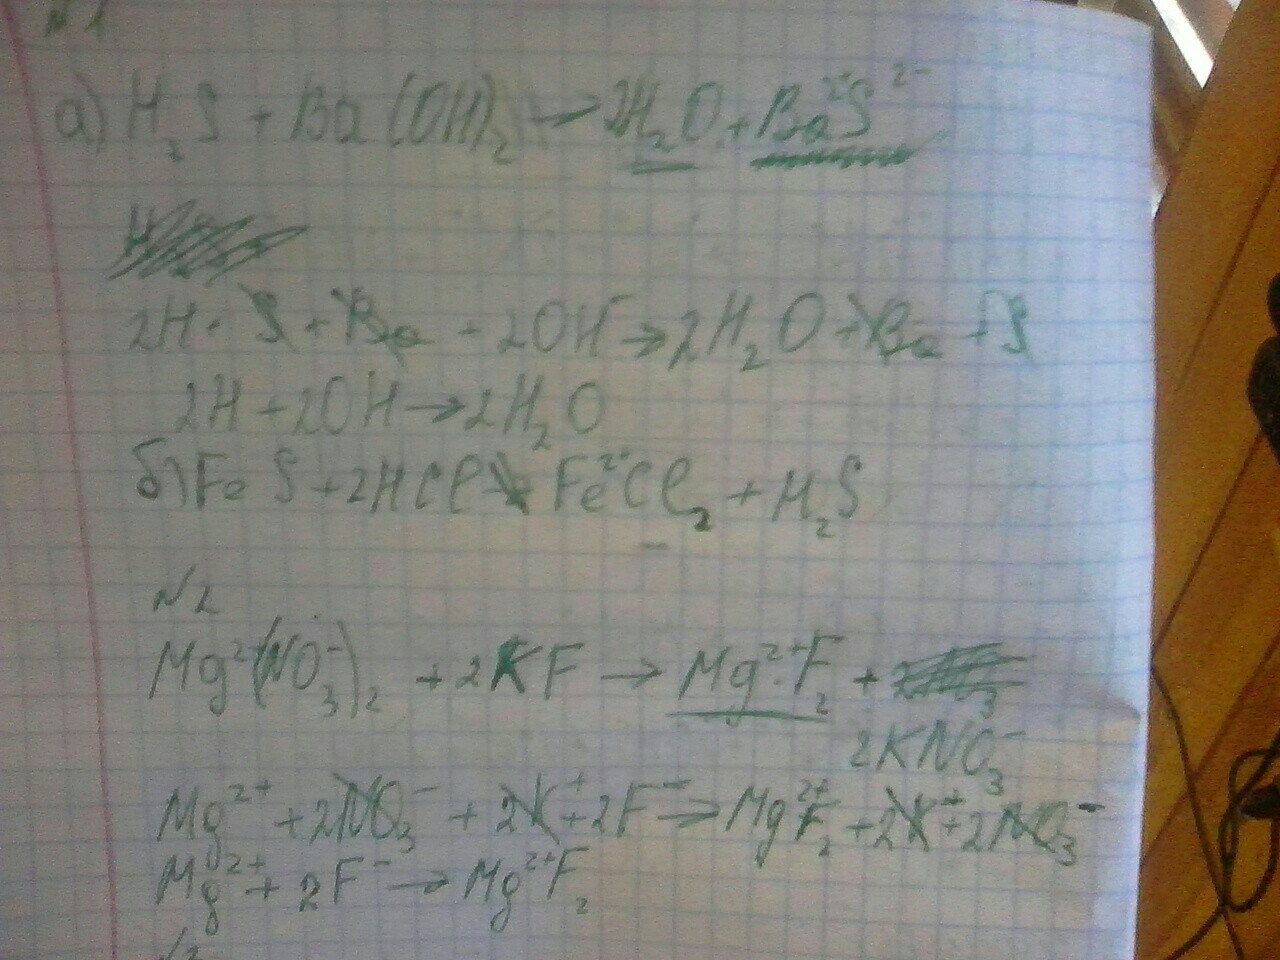 №1
а) H₂S + Ba(OH)₂ → 2H₂O + Ba²⁺S²⁻
2H + S + Ba + 2OH → 2H₂O + Ba + S
2H + 2OH → 2H₂O
б) FeS + 2HCl → Fe²⁺Cl₂ + H₂S
№2
Mg²⁺(NO₃⁻)₂ + 2KF → Mg²⁺F₂ +
2KNO₃⁻
Mg²⁺ + 2NO₃⁻ + 2K⁺ + 2F⁻ → Mg²⁺F₂ + 2K⁺ + 2NO₃⁻
Mg²⁺ + 2F⁻ → Mg²⁺F₂